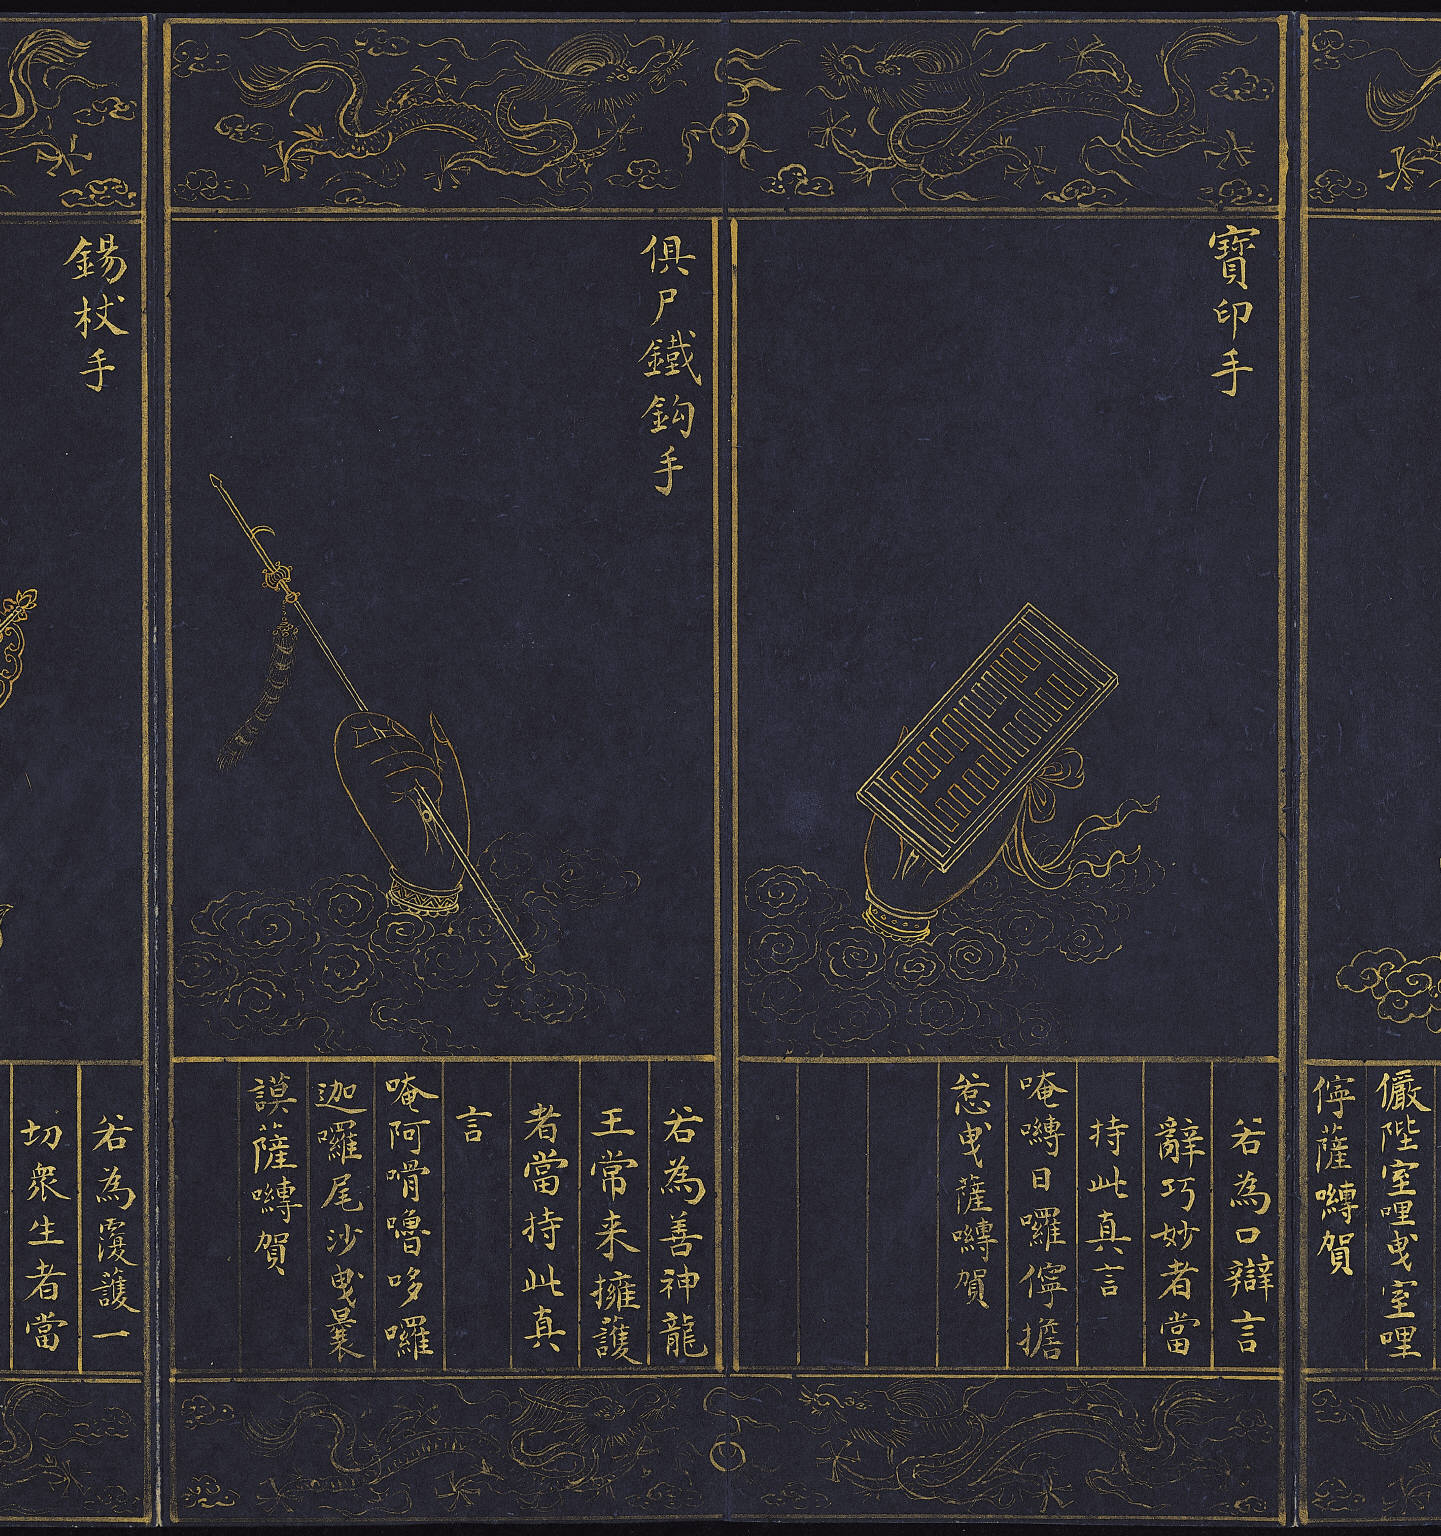 儼陛室哩曳室哩
儜薩嚩賀
寶印手
若為口辯言
辭巧妙者當
持此真言
唵嚩日囉儜擔
惹曳薩嚩賀
俱尸鐵鈎手
若為善神龍
王常来擁護
者當持此真
言
唵阿嗗嚕哆囉
迦囉尾沙曳曩
謨薩嚩賀
錫杖手
若為覆護一
切衆生者當